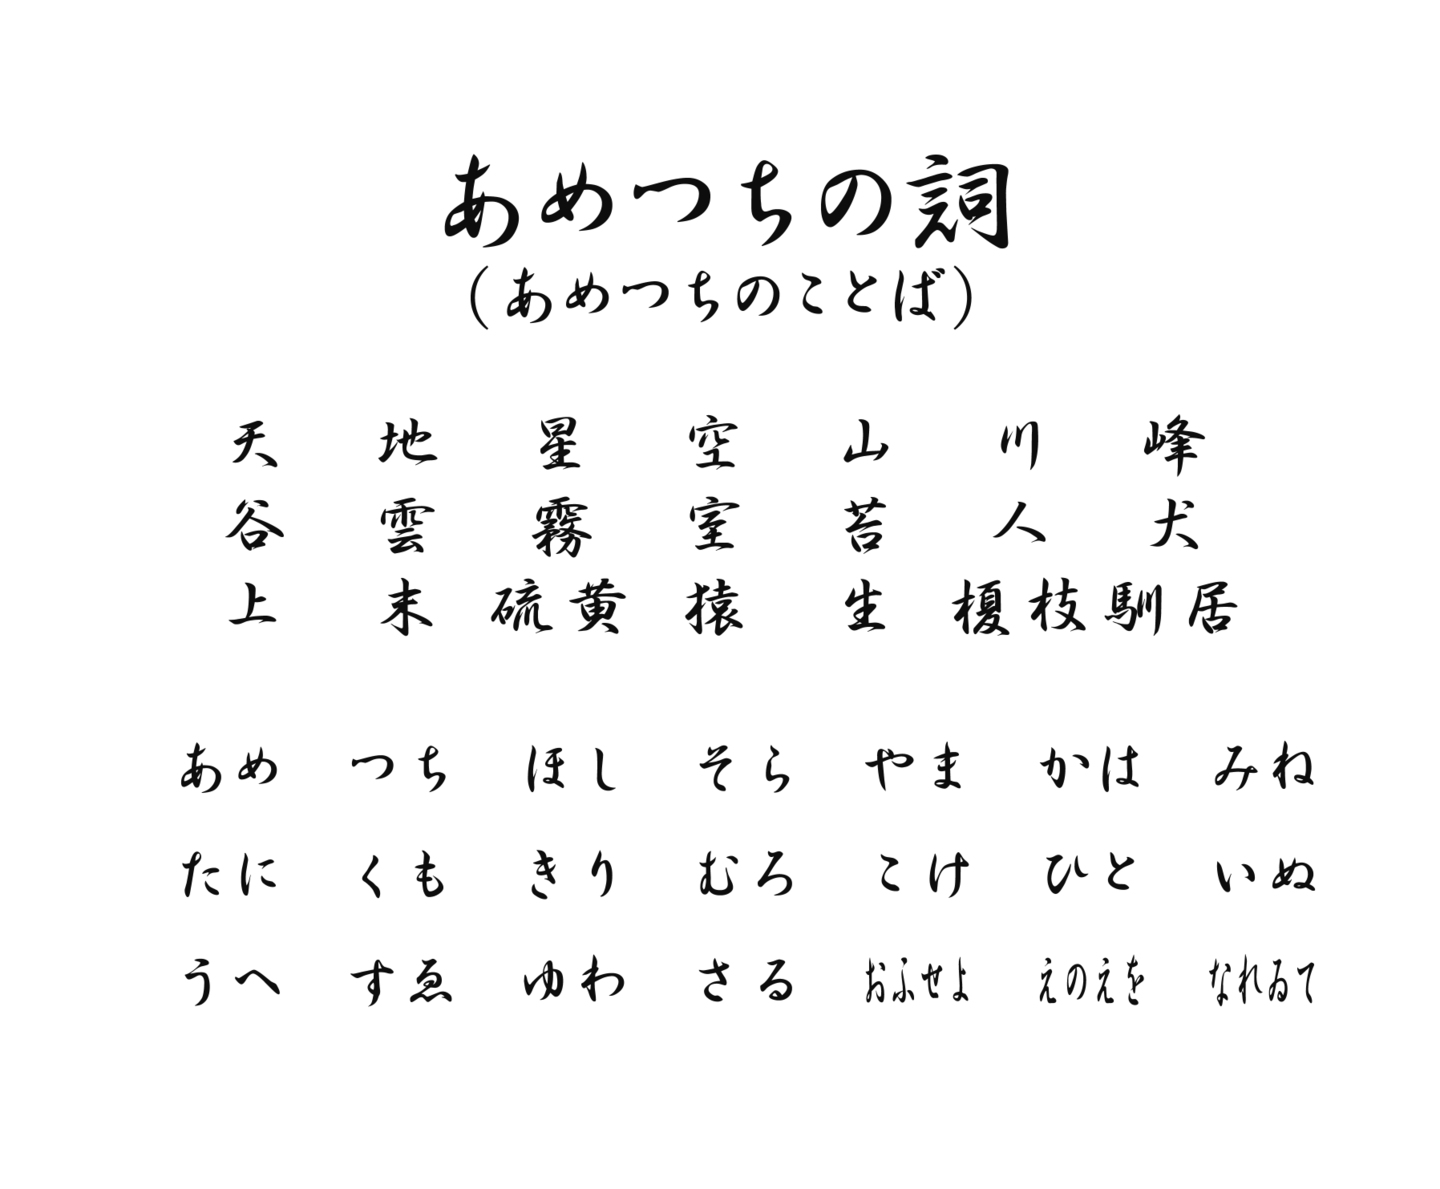 あめつちの詞
(あめつちのことば)
天 地 星 空 山 川 峰
谷 雲 霧 室 苔 人 犬
上 末 硫黄 猿 生 榎枝馴居
あめ つち ほし そら やま かは みね
たに くも きり むろ こけ ひと いぬ
うへ すゑ ゆわ さる おふせよ えのえを なれゐて